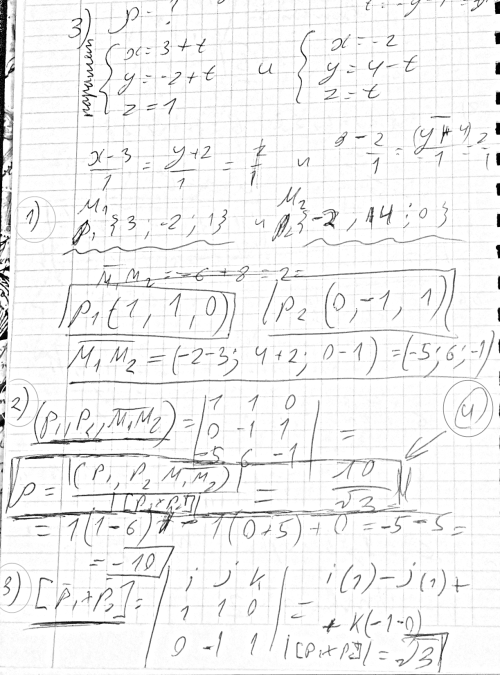 3) ρ - ?
парамет
{ x = 3 + t
y = -2 + t
z = 1
и
{ x = -2
y = 4 - t
z = t
(x-3)/1 = (y+2)/1 = и
1) M₁ {3 ; -2 ; 1} и M₂ {-2 , 4 ; 0}
M₁M₂ = -6 + 8 = 2 =
P₁ (1, 1, 0) P₂ (0, -1, 1)
M₁M₂ = (-2-3; 4+2; 0-1) = (-5; 6; -1)
2) (P₁, P₂, M₁M₂) = | 1 1 0
0 -1 1
-5 6 -1 | =
4)
ρ = |(P₁, P₂ M₁M₂)| / |[P₁×P₂]| = 10/√3 =
= 1(1-6) - 1(0+5) + 0 = -5 - 5 =
= -10
3) [P₁×P₂] = | i j k
1 1 0
0 -1 1 | = i(1) - j(1) +
+ k(-1-0)
|[P₁×P₂]| = √3